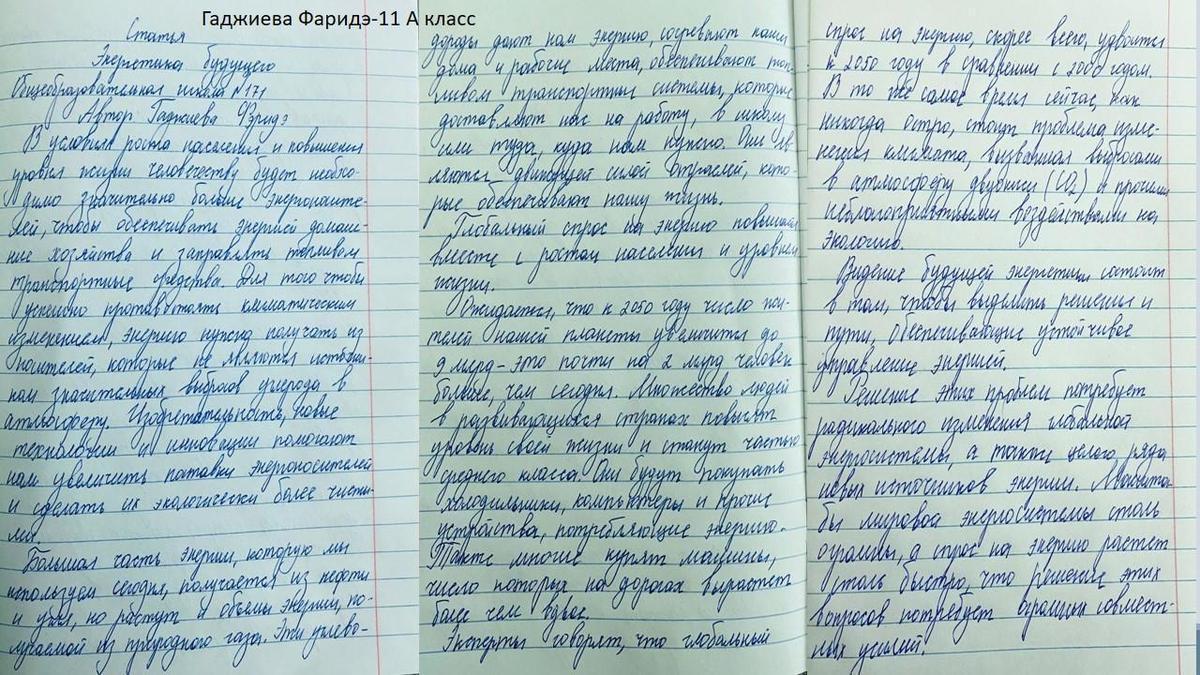 Гаджиева Фаридэ-11 А класс
Статья
Энергетика будущего
Общеобразовательная школа №171
Автор: Гаджиева Фэридэ
В условия роста населения и повышения
уровня жизни человечеству будет необхо-
димо значительно больше энергоносите-
лей, чтобы обеспечивать энергией домаш-
ние хозяйства и заправлять топливом
транспортные средства. Для того чтобы
успешно противостоять климатическим
изменениям, энергию нужно получать из
носителей, которые не являются источни-
ком значительных выбросов углерода в
атмосферу. Изобретательность, новые
технологии и инновации помогают
нам увеличить поставки энергоносителей
и сделать их экологически более чисты-
ми.
Большая часть энергии, которую мы
используем сегодня, получается из нефти
и угля, но растут и объемы энергии, по-
лучаемой из природного газа. Эти углево-
дороды дают нам энергию, согревают наши
дома и рабочие места, обеспечивают топ-
ливом транспортные системы, которые
доставляют нас на работу, в школу
или туда, куда нам нужно. Они яв-
ляются движущей силой отраслей, кото-
рые обеспечивают нашу жизнь.
Глобальный спрос на энергию повышается
вместе с ростом населения и уровнем
жизни.
Ожидается, что к 2050 году число жи-
телей нашей планеты увеличится до
9 млрд - это почти на 2 млрд человек
больше, чем сегодня. Множество людей
в развивающихся странах повысят
уровень своей жизни и станут частью
среднего класса. Они будут покупать
холодильники, компьютеры и прочие
устройства, потребляющие энергию.
Также многие купят машины,
число которых на дорогах вырастет
более чем вдвое.
Эксперты говорят, что глобальный
спрос на энергию, скорее всего, удвоится
к 2050 году в сравнении с 2000 годом.
В то же самое время сейчас, как
никогда остро, стоит проблема изме-
нения климата, вызванная выбросами
в атмосферу двуокиси (CO2) и прочими
неблагоприятными воздействиями на
экологию.
Видение будущей энергетики состоит
в том, чтобы выделить решения и
пути, обеспечивающие устойчивое
управление энергией.
Решение этих проблем потребует
радикального изменения глобальной
энергосистемы, а также целого ряда
новых источников энергии. Масшта-
бы мировой энергосистемы столь
огромны, а спрос на энергию растет
столь быстро, что решение этих
вопросов потребует огромных совмест-
ных усилий.